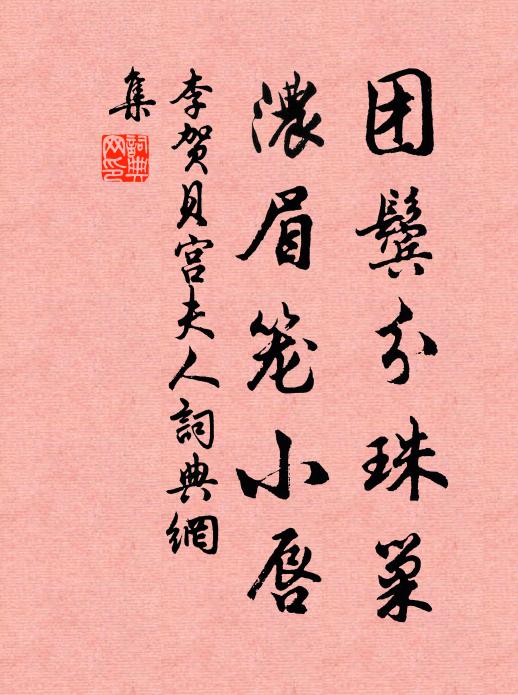 团鬓分珠巢
濃眉笼小唇
李贺贝宫夫人詞典網
集
詞典
网印